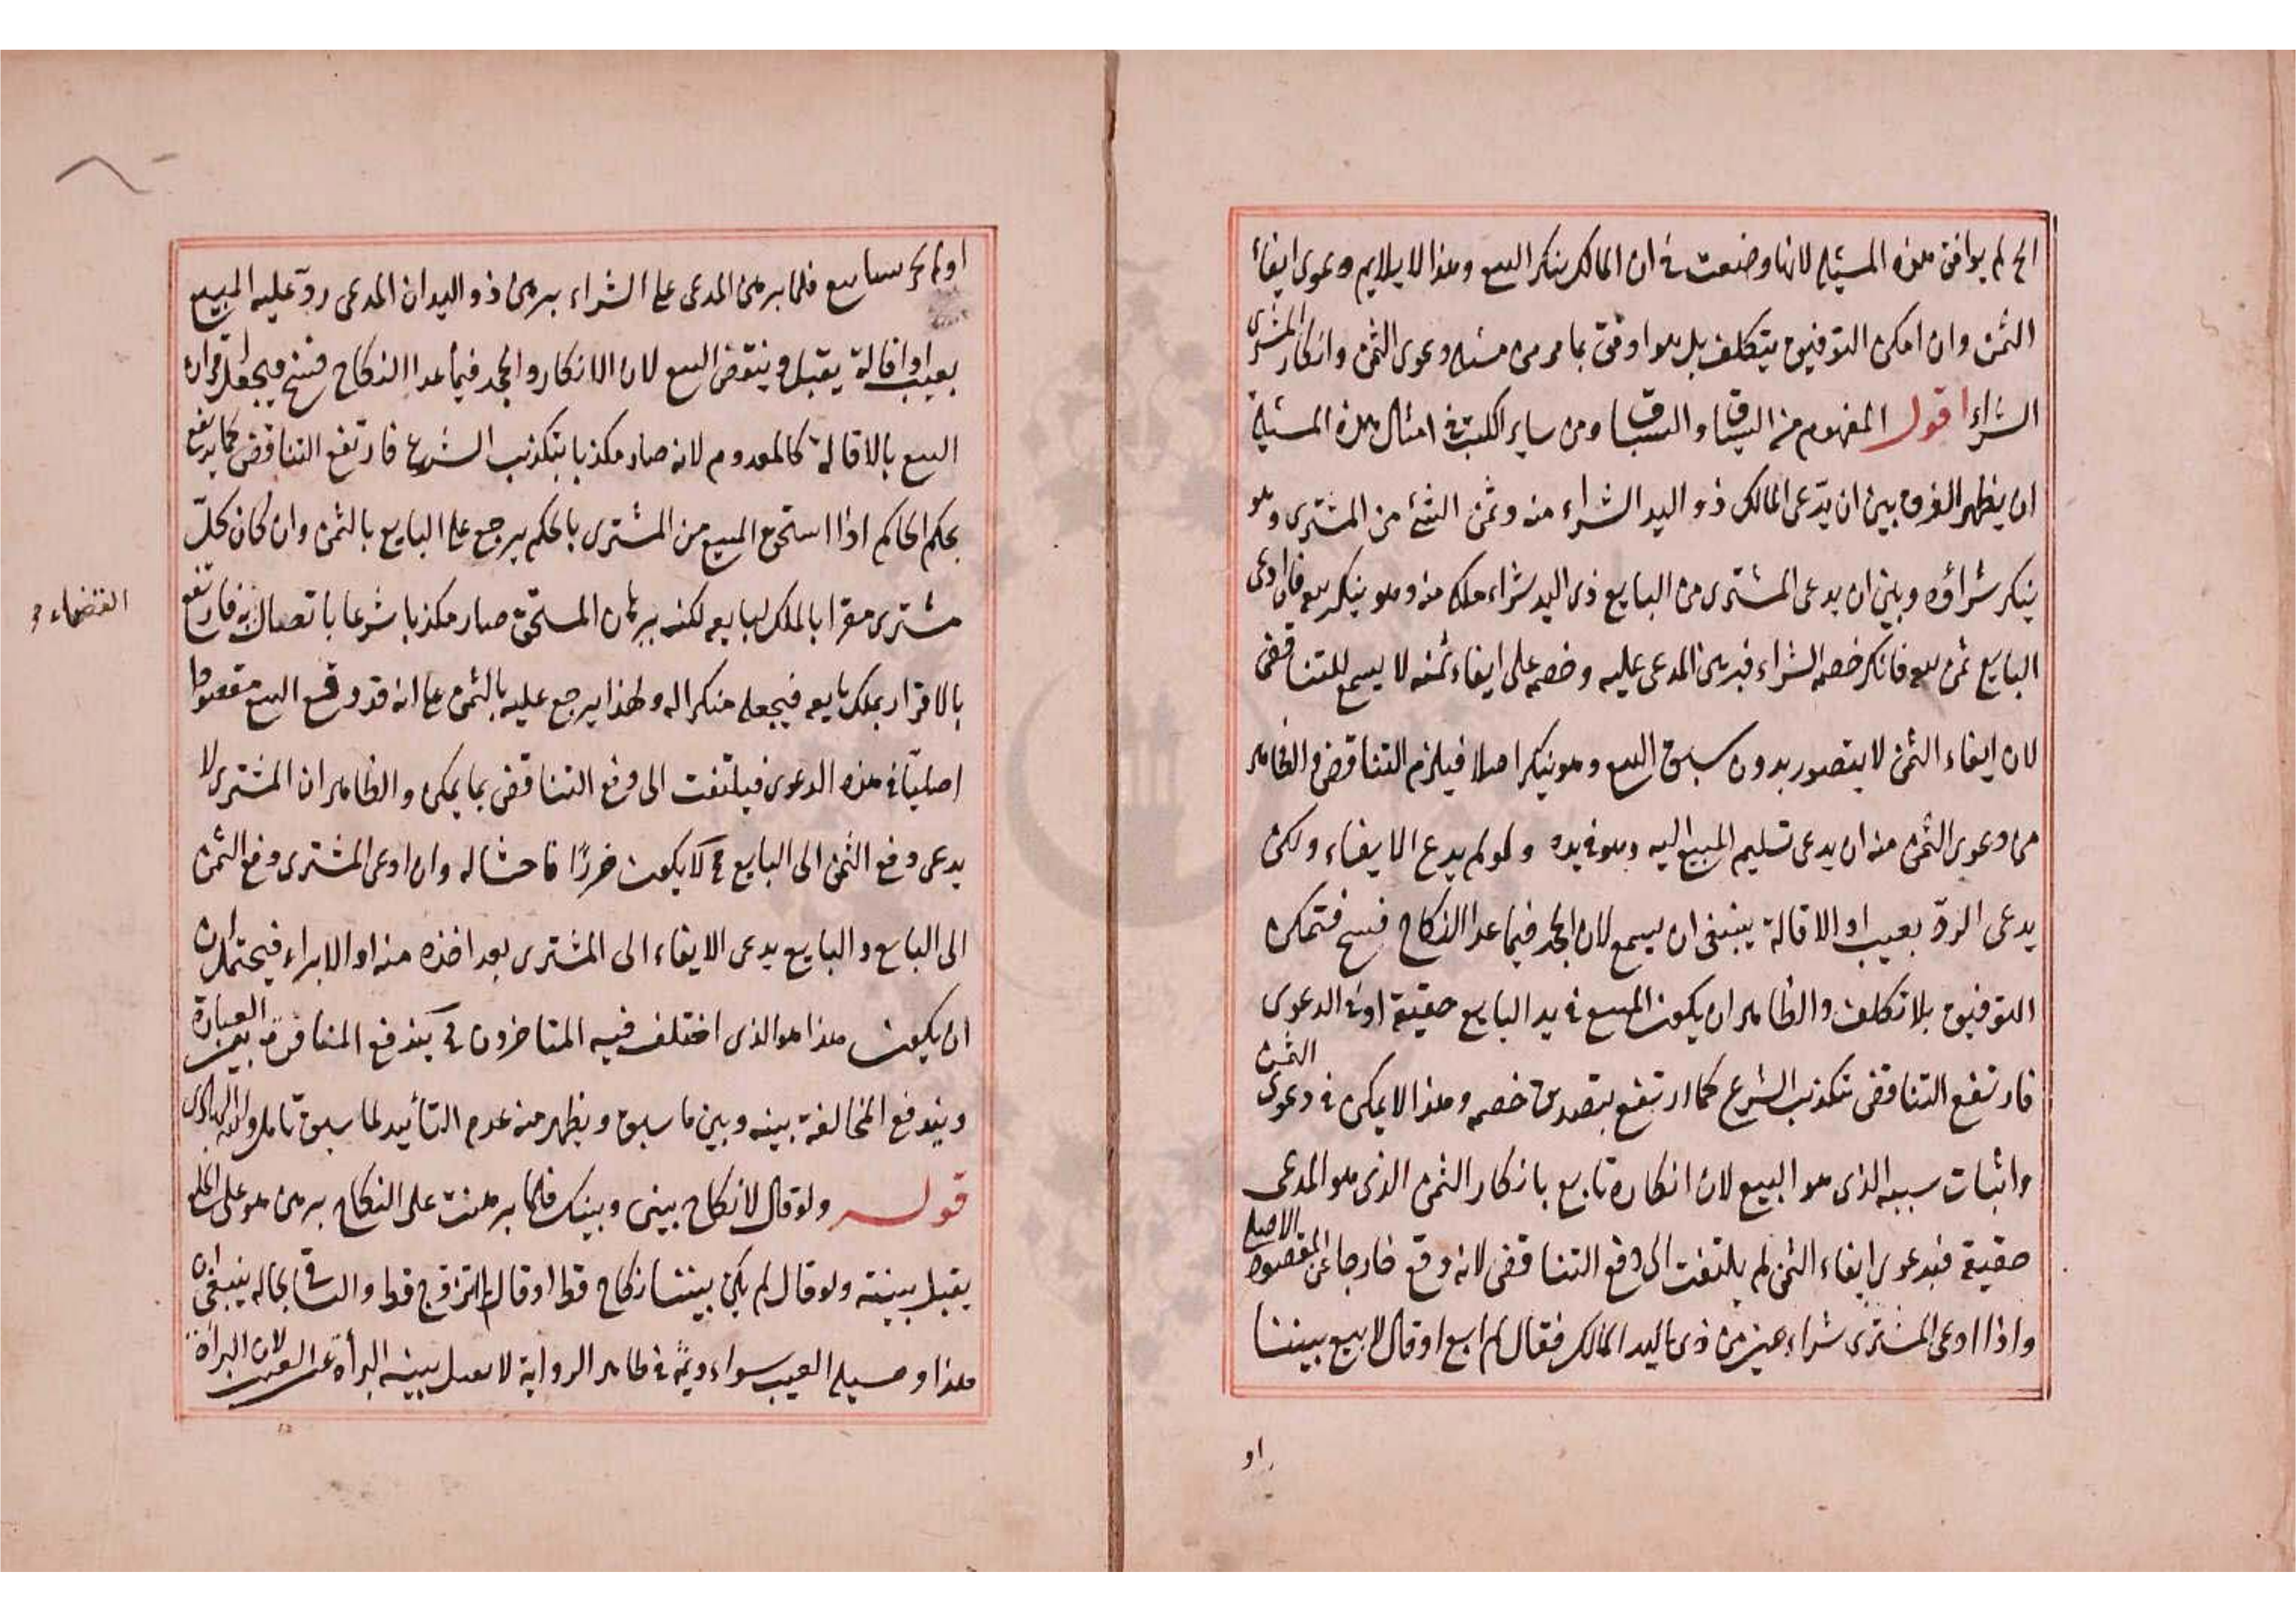 الخ لم يوافق هذه المسئلة لانها وضعت في ان المالك ينكر البيع وهذا لا يلايم دعوى ايفاء
الثمن وان امكن التوفيق بتكلف بل هو اوفق بما مر من مسئلة دعوى الثمن وانكار المشترى
الشراء اقول المفهوم من السياق والسباق ومن ساير الكتب في امثال هذه المسئلة
ان يظهر الفرق بين ان يدعى المالك ذو اليد الشراء منه وثمن الشئ من المشترى وهو
ينكر شراؤه وبين ان يدعى المشترى من البايع ذى اليد شراء ملكه منه وهو ينكر بيعه فان ادعى
البايع ثمن بيعه فانكر خصمه الشراء فبرهن المدعى عليه وخصمه على ايفاء ثمنه لا يسمع للتناقض
لان ايفاء الثمن لا يتصور بدون سبق البيع وهو ينكر اصلا فيلزم التناقض والظاهر
من دعوى الثمن منه ان يدعى تسليم المبيع اليه وهو في يده ولو لم يدع الايفاء ولكن
يدعى الرد بعيب او الاقالة ينبغى ان يسمع لان الجحد فيما عدا النكاح فسخ فتمكن
التوفيق بلا تكلف والظاهر ان يكون المبيع في يد البايع حقيقة او في الدعوى
فارتفع التناقض بتكذيب الشرع كما ارتفع بتصديق خصمه وهذا لا يمكن في دعوى الثمن
واثبات سببه الذى هو البيع لان انكاره تابع بانكار الثمن الذى هو المدعى
حقيقة فبدعوى ايفاء الثمن لم يلتفت الى دفع التناقض لانه وقع خارجا عن المقصود الاصلى
واذا ادعى المشترى شراء عين من ذى اليد المالك فقال لم ابع او قال لا بيع بيننا
او
او لم يجر بيننا بيع فلما برهن المدعى على الشراء برهن ذو اليد ان المدعى رد عليه المبيع
بعيب او اقالة يقبل وينتقض البيع لان الانكار والجحد فيما عدا النكاح فسخ فيجعل اقراره
البيع بالاقالة كالمعدوم لانه صار مكذبا بتكذيب الشرع فارتفع التناقض كما يرتفع
بحكم الحاكم اذا استحق المبيع من المشترى بالحكم يرجع على البايع بالثمن وان كان كل
مشترى مقرا بالملك لبايعه لكنه ببرهان المستحق صار مكذبا شرعا باتصال به فارتفع
القضاء
بالاقرار بملك بايعه فيجعل منكرا له ولهذا يرجع عليه بالثمن على انه قد وقع البيع مقصودا
اصليا في هذه الدعوى فيلتفت الى دفع التناقض بما يمكن والظاهر ان المشترى لا
يدعى دفع الثمن الى البايع كلا يكون ضررا فاحشا له وان ادعى المشترى دفع الثمن
الى البايع والبايع يدعى الايفاء الى المشترى بعد اخذه منه او الابراء فيحتمل ان
ان يكون هذا هو الذى اختلف فيه المتاخرون يندفع العبارة
ويندفع المخالفة بينه وبين ما سبق ويظهر منه عدم التأييد لما سبق تامل والله الهادى
قوله ولو قال لا نكاح بينى وبينك فلما برهنت على النكاح برهن هو على الخلع
يقبل ببينته ولو قال لم يكن بيننا نكاح قط او قال لم اتزوج قط والباقى بحاله ينبغى ان
هذا ومسئلة العيب سواء وثمة في ظاهر الرواية لا يقبل بينة البرأة عن العيب لان البرأة